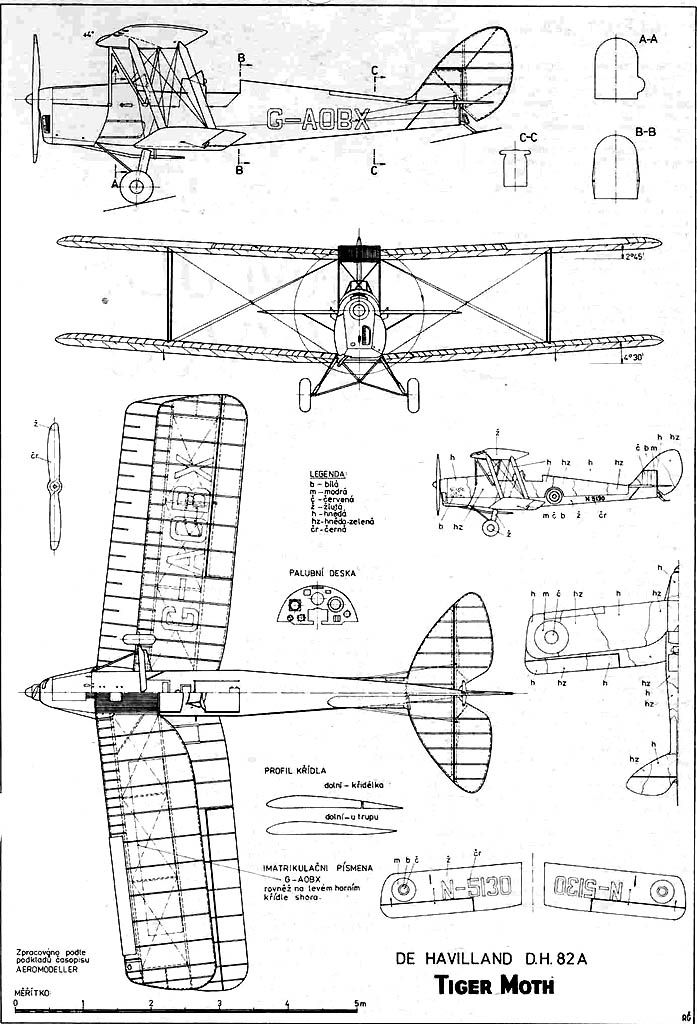 +4°
A
B
C
G-AOBX
A
B
C
A-A
C-C
B-B
2°45'
4°30'
G-AOBX
ž
čr
LEGENDA:
b - bílá
m - modrá
č - červená
ž - žlutá
h - hnědá
hz - hnědo-zelená
čr - černá
ž
h
h
hz
h
č b m
h hz
N 5130
b
hz
ž
m č b
ž
čr
PALUBNÍ DESKA
h
h
m
č
hz
h
hz
h
hz
h
hz
hz
h
hz
hz
h
PROFIL KŘÍDLA
dolní - křidélka
dolní - u trupu
IMATRIKULAČNÍ PÍSMENA
G-AOBX
rovněž na levém horním
křídle shora.
m b č
ž
čr
N-5130
N-5130
Zpracováno podle
podkladů časopisu
AEROMODELLER
MĚŘÍTKO:
0 1 2 3 4 5m
DE HAVILLAND D.H. 82A
TIGER MOTH